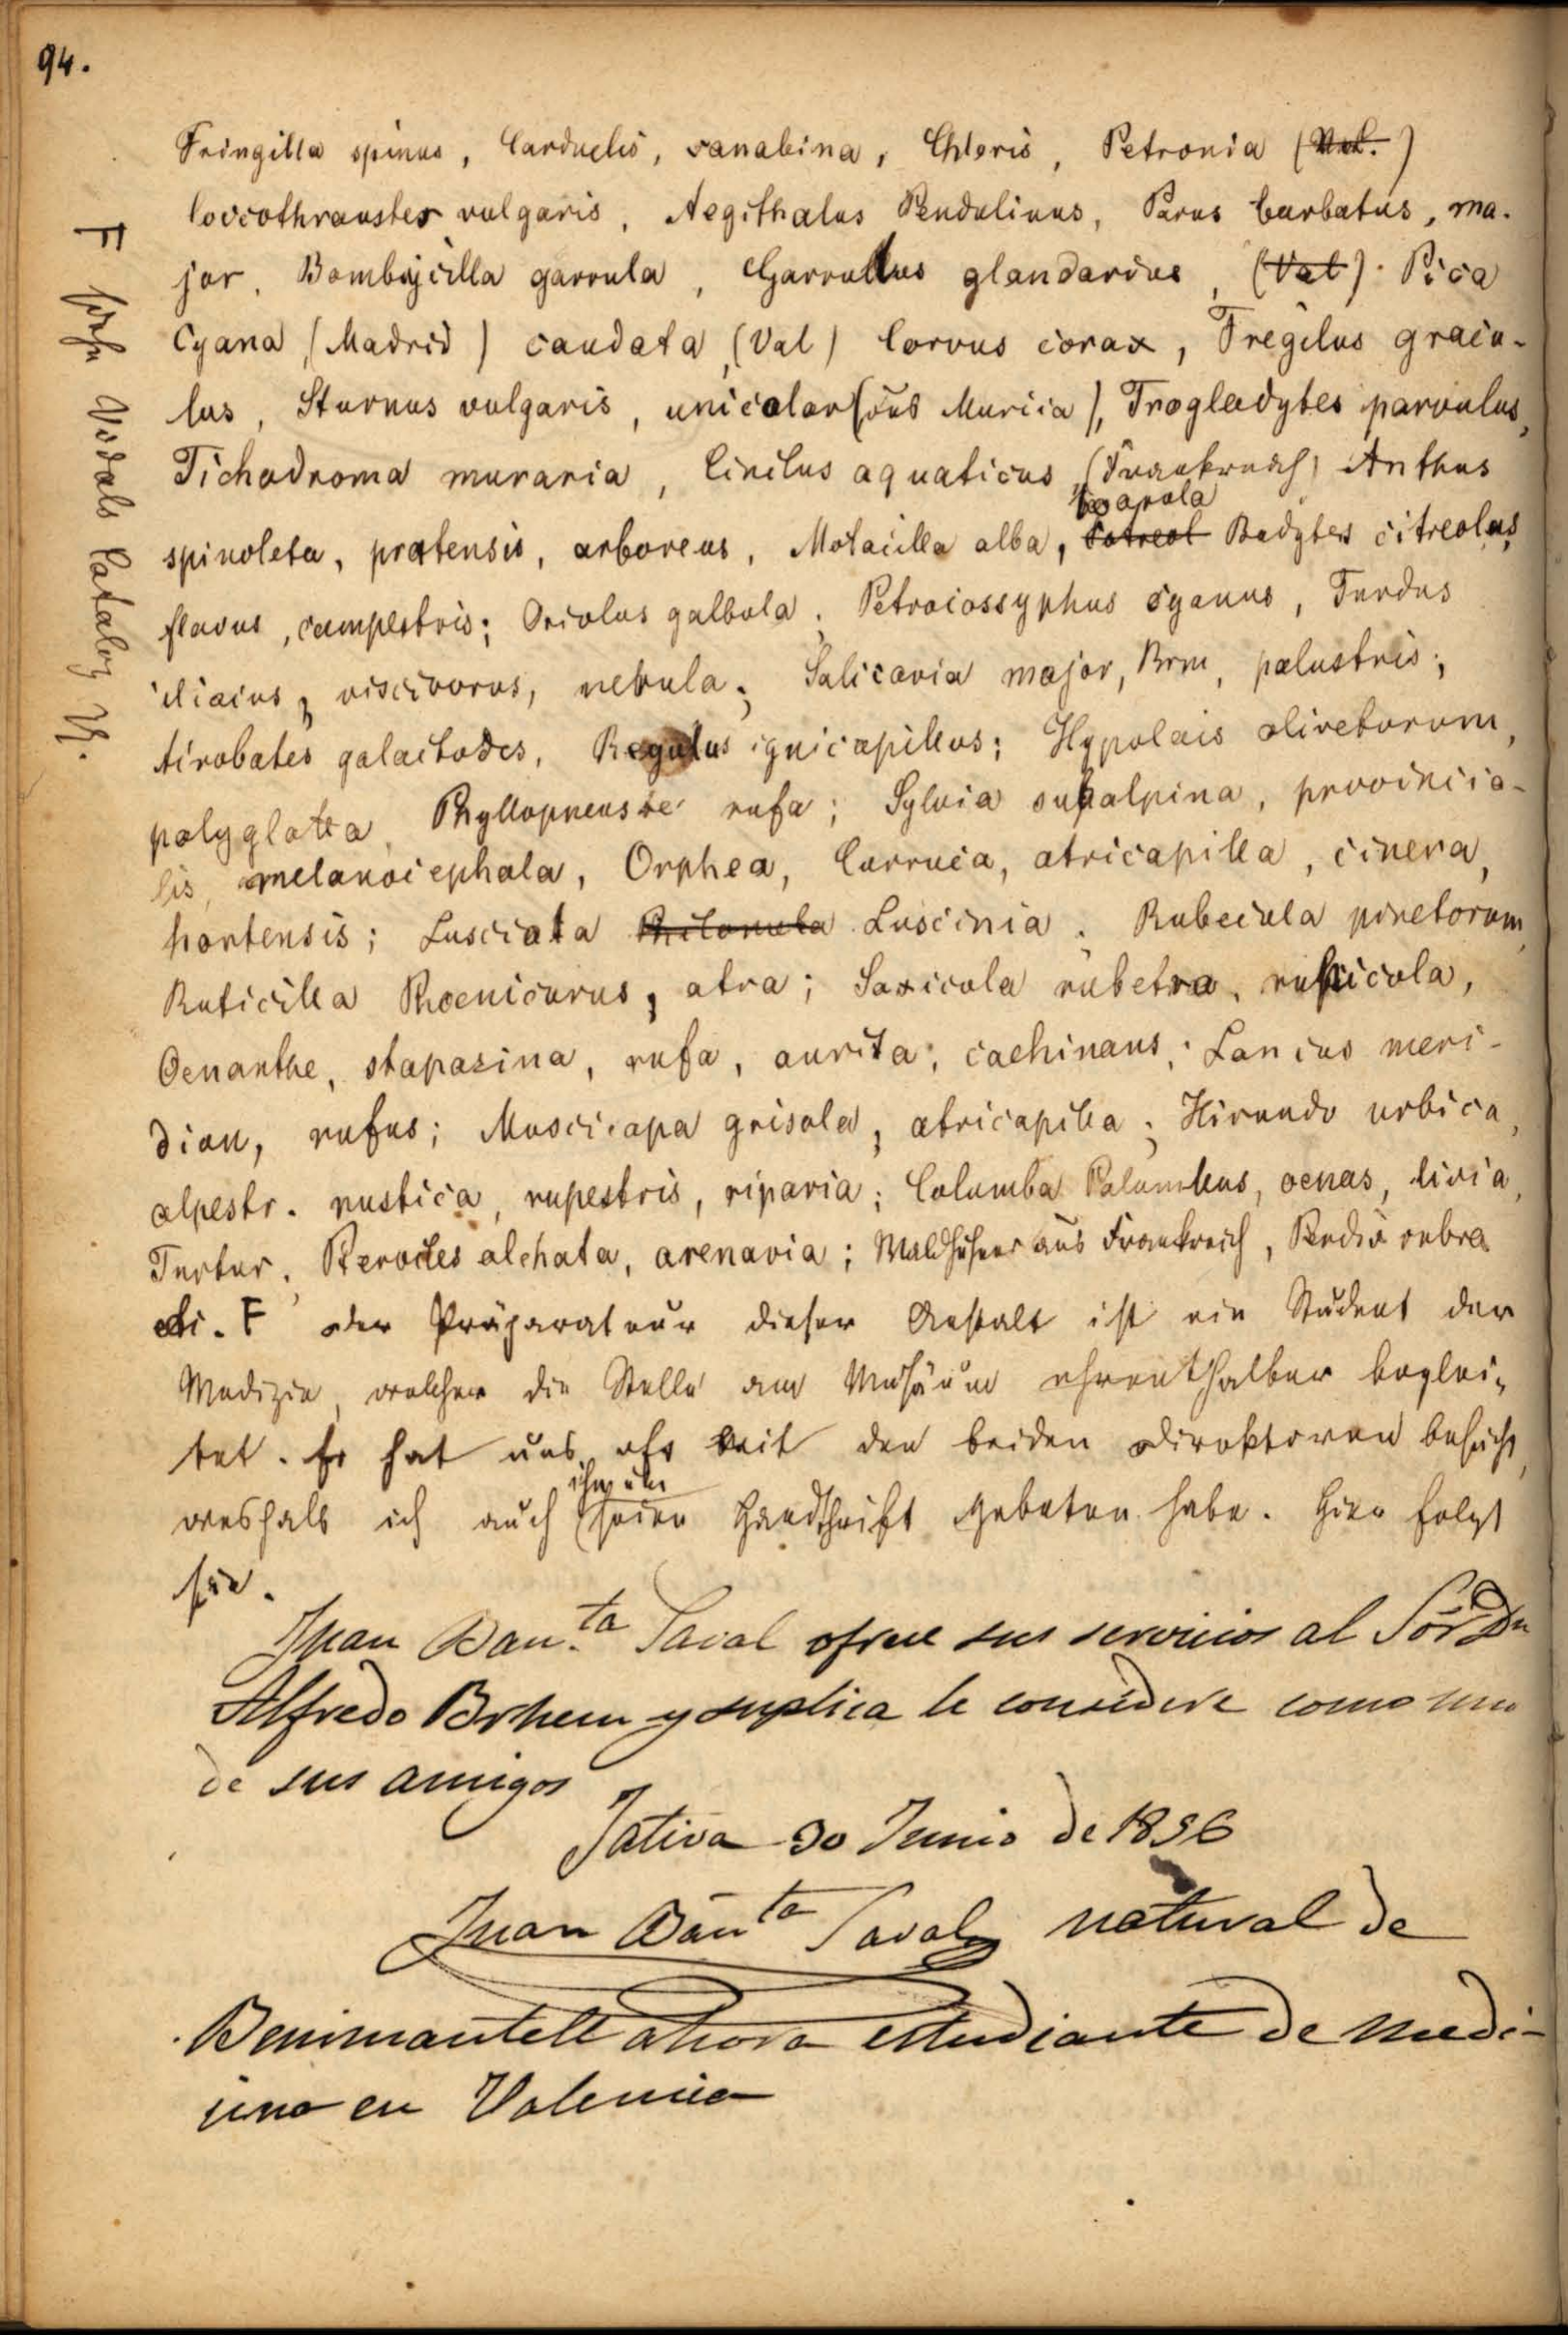 94.
Fringilla spinus, Carduelis, canabina, Chloris, Petronia (Val.)
Coccothraustes vulgaris, Aegithalus Pendulinus, Parus barbatus, ma-
jor, Bombycilla garrula, Garrullus glandarius, (Val). Pica
Cyana (Madrid) caudata, (Val) Corvus corax, Fregilus gracu-
lus, Sturnus vulgaris, unicolor (aus Murcia), Trogledytes parvulus,
Tichodroma muraria, Cinclus aquaticus, (Frankreich) Anthus
boarula
spinoleta, pratensis, arboreus, Motacilla alba, Citreol Budytes citreolus,
flavus, campestris; Oriolus galbula, Petrocossyphus cyanus, Turdus
iliacus, viscivorus, nebula; Salicaria major, Brm, palustris;
Airobates galactodes, Regulus ignicapillus; Hypolais olivetorum,
polyglotta, Phyllopneuste rufa; Sylvia subalpina, provincia-
lis, melanocephala, Orphea, Curruca, atricapilla, cinera,
hortensis; Lusciola Philomela Luscinia. Rubecula pinetorum,
Ruticilla Phoenicurus, atra; Saxicola rubetra, rubicola,
Oenanthe, stapazina, rufa, aurita, cachinans; Lanius meri-
dion, rufus; Muscicapa grisola, atricapilla; Hirundo urbica,
alpestr. rustica, rupestris, riparia; Columba Palumbus, oenas, livia,
Turtur, Pterocles alchata, arenaria; Waldhühner aus Frankreich, Perdix rubra
etc. F Der Präparateur dieser Anstalt ist ein Student der
Medizin, welcher die Stelle am Musäum ehrenthalber beglei-
tet. Er hat uns oft mit den beiden Direktoren besucht,
ihn um
weshalb ich auch seine Handschrift gebeten habe. Hier folgt
sie.
Juan Bau.ta Saval ofrece sus servicios al Sór Dn
Alfredo Brhem y suplica le considere como uno
de sus amigos
Jativa 30 Junio de 1856
Juan Bauta Saval natural de
Benimantell ahora estudiante de medi-
cina en Valencia
F siehe Vidals Catalog